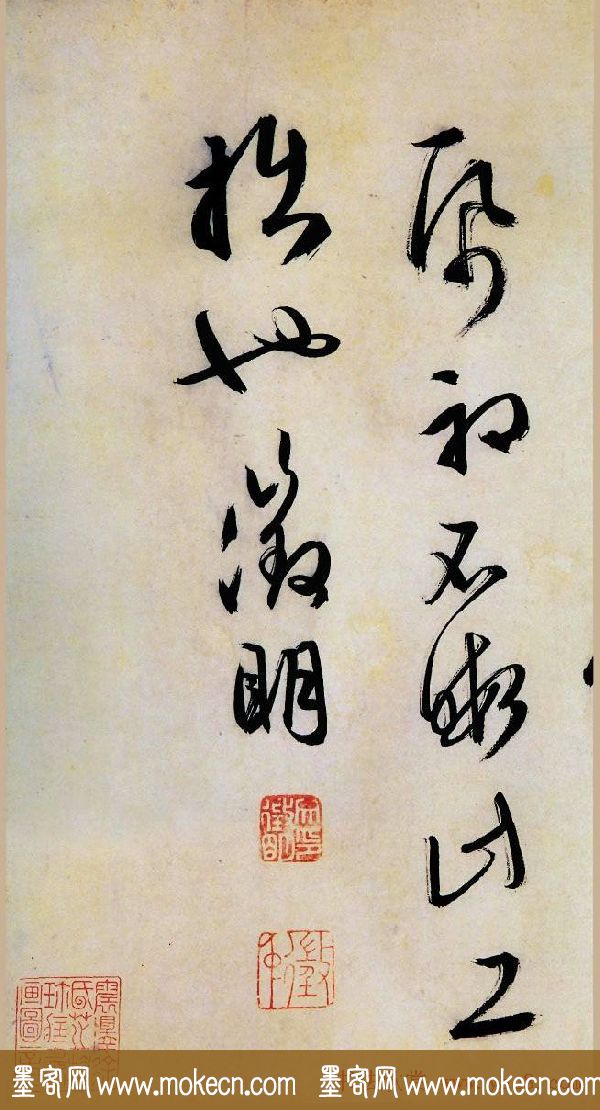 帋初不暇計工
拙也徵明
墨客网 www.mokecn.com 墨客网 www.mokecn.com